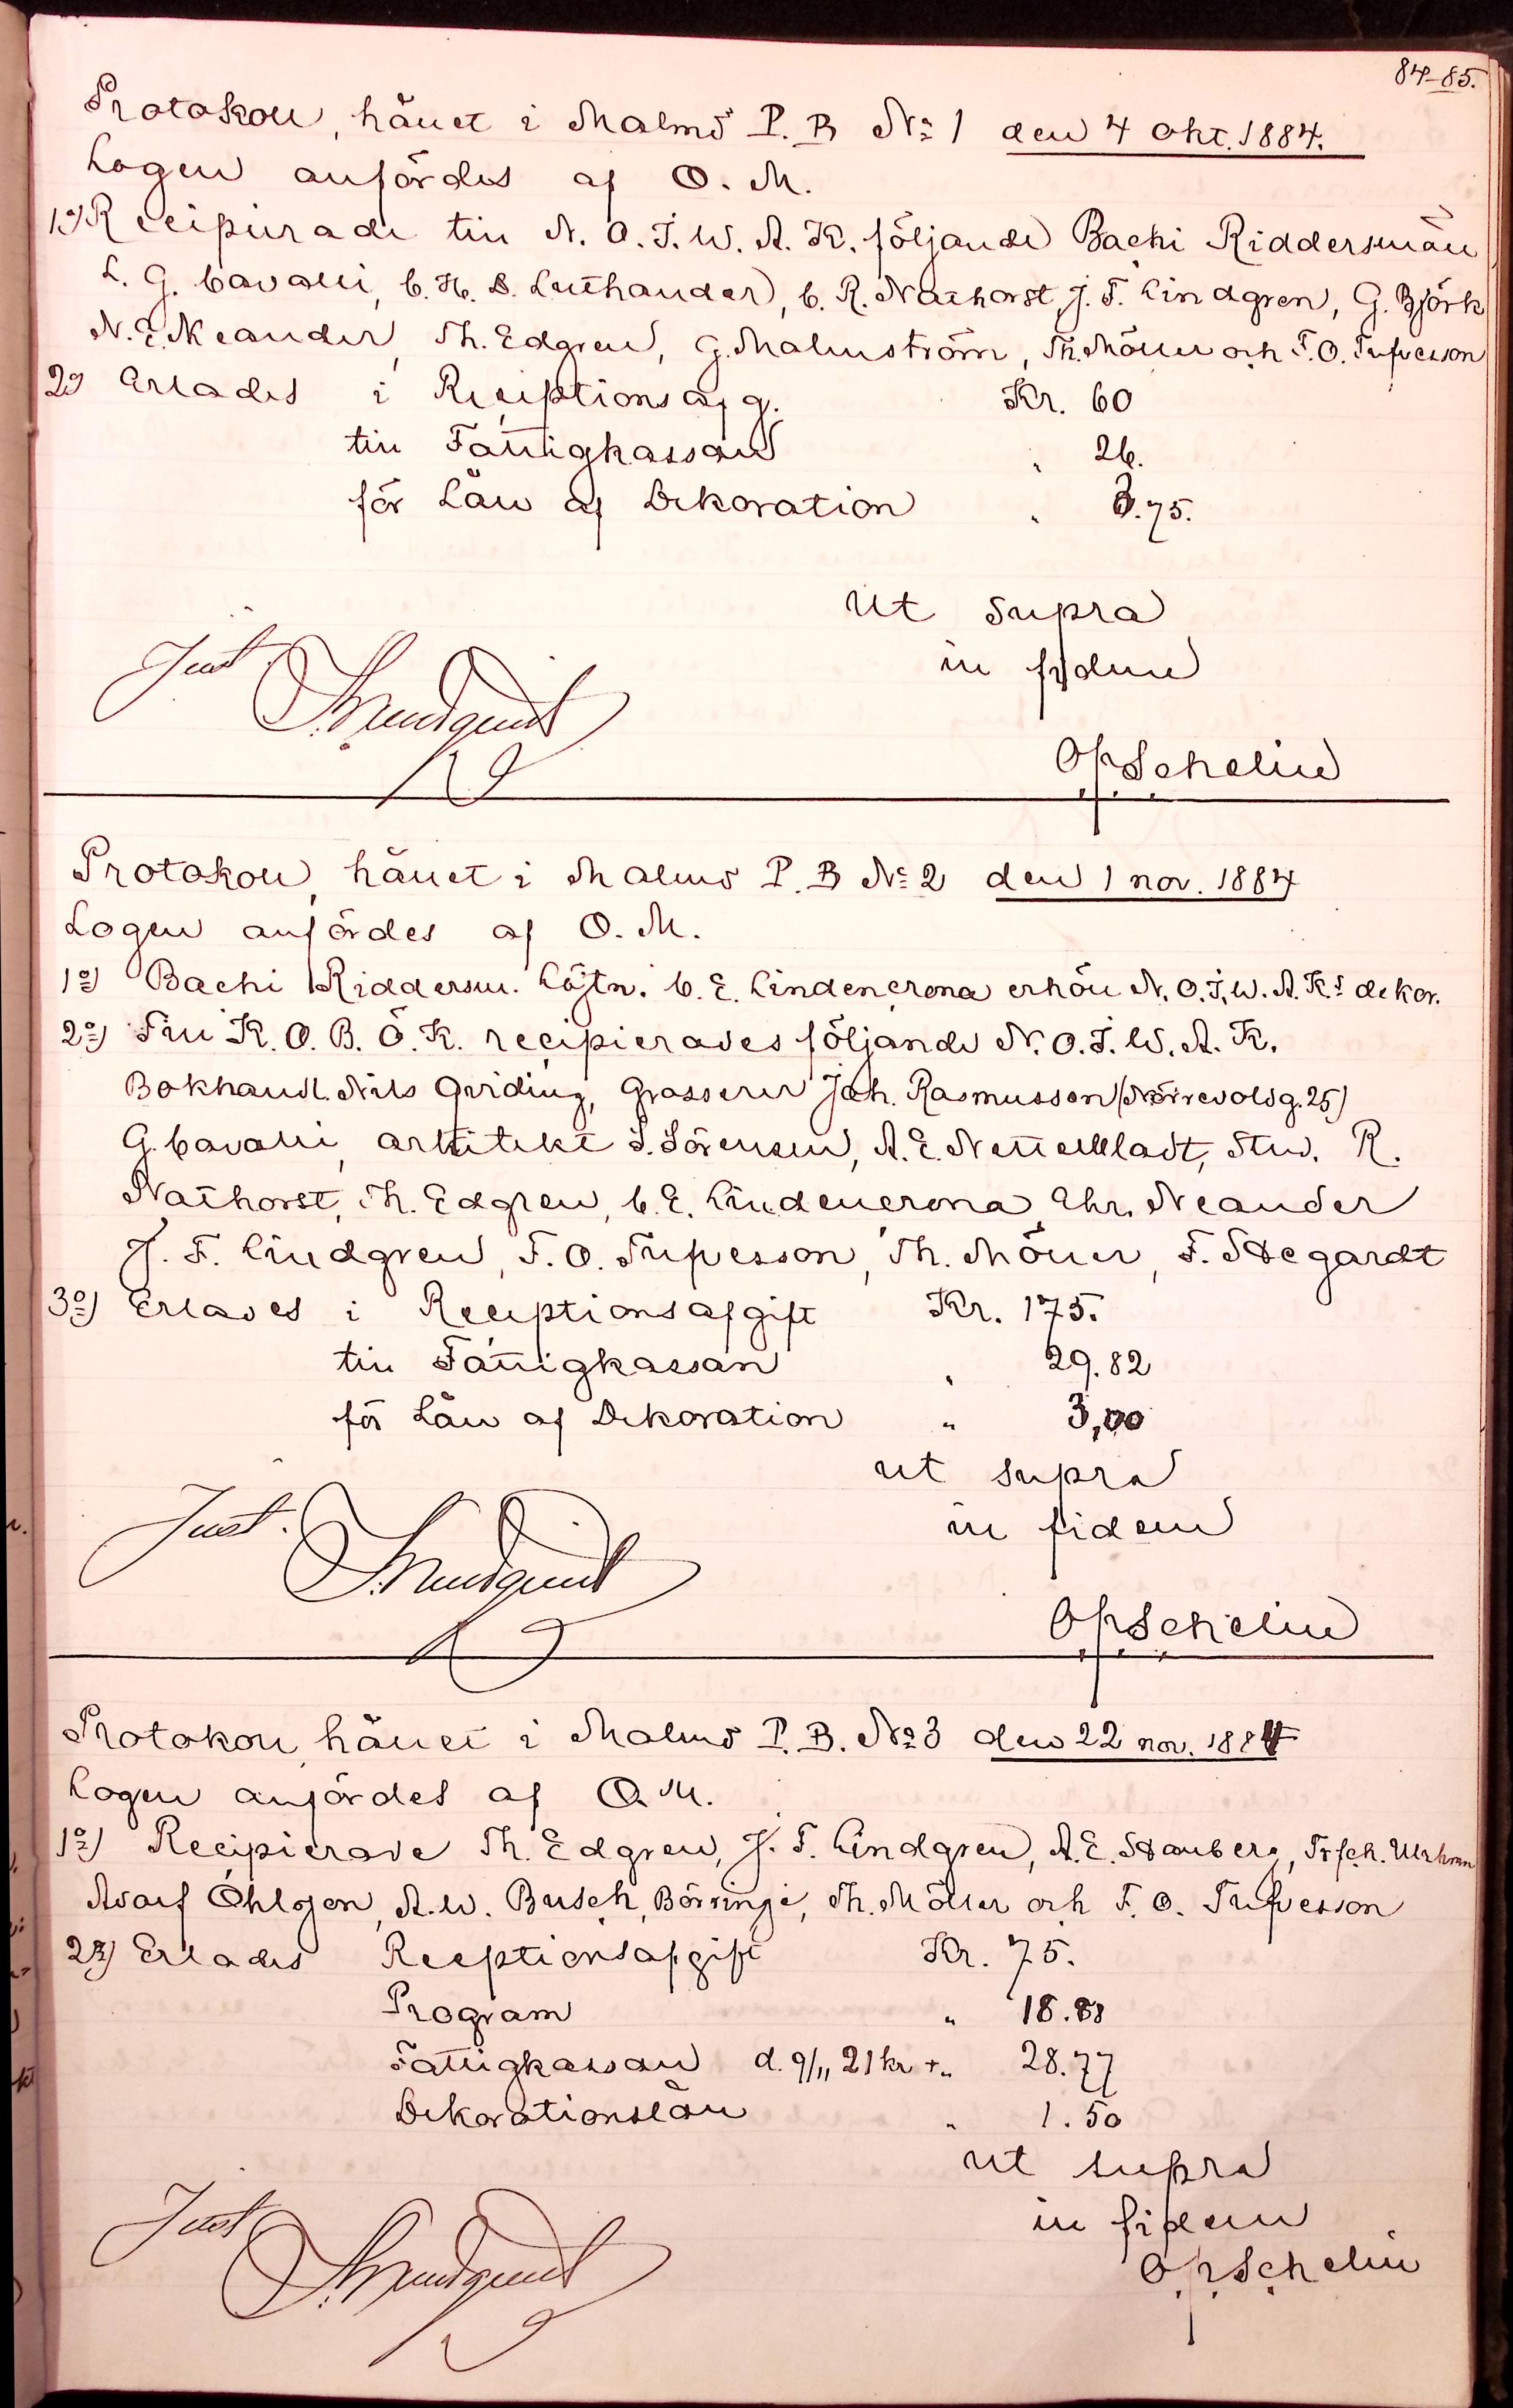 84-85.
Protokoll, hållet i Malmö P. B № 1 den 4 okt. 1884.
Logen anfördes af O. M.
1o) Recipierade till N. O. I. W. A. K. följande Bachi Riddersmän
L. G. Cavalli, C. H. S. Luthander, C. R. Nathorst, J. F. Lindgren, G. Björk
N. E. Neander, Th. Edgren, G. Malmström, Th. Möller och F. O. Tufvesson
2o) Erlades i Receptionsafg. Kr. 60
till Fattigkassan " 26.
för Lån af Dekoration " 3.75.
ut supra
in fidem
Just.
OpSchelin
Protokoll, hållet i Malmö P. B № 2 den 1 nov. 1884
Logen anfördes af O. M.
1o) Bachi Riddersm. Löjtn. C. E. Lindencrona erhöll N. O. I. W. A. K:s dekor.
2o) Till K. O. B. Ö. K. recipierades följande N. O. I. W. A. K.
Bokhandl. Nils Gviding, Grosserer Joh. Rasmusson (Nörrevoldsg. 25)
G. Cavalli, arkitekt S. Sörensen, A. E. Nettelbladt, Stud. R.
Nathorst, Th. Edgren, C. E. Lindencrona, Ehr. Neander
J. F. Lindgren, F. O. Tufvesson, Th. Möller, F. Hegardt
3o) Erlades i Receptionsafgift Kr. 175.
till Fattigkassan " 29.82
för Lån af Dekoration " 3,00
ut supra
in fidem
Just.
OpSchelin
Protokoll hållet i Malmö P. B. № 3 den 22 nov. 1884
Logen anfördes af O. M.
1o) Recipierade Th. Edgren, J. F. Lindgren, A. E. Stanberg,
Adolf Öhlgen, A. W. Busch, Börringe, Th. Möller och F. O. Tufvesson
2o) Erlades Receptionsafgift Kr. 75.
Program " 18.88
Fattigkassan d. 9/11 21 kr + " 28.77
Dekorationslån " 1.50
ut supra
in fidem
Just
OpSchelin